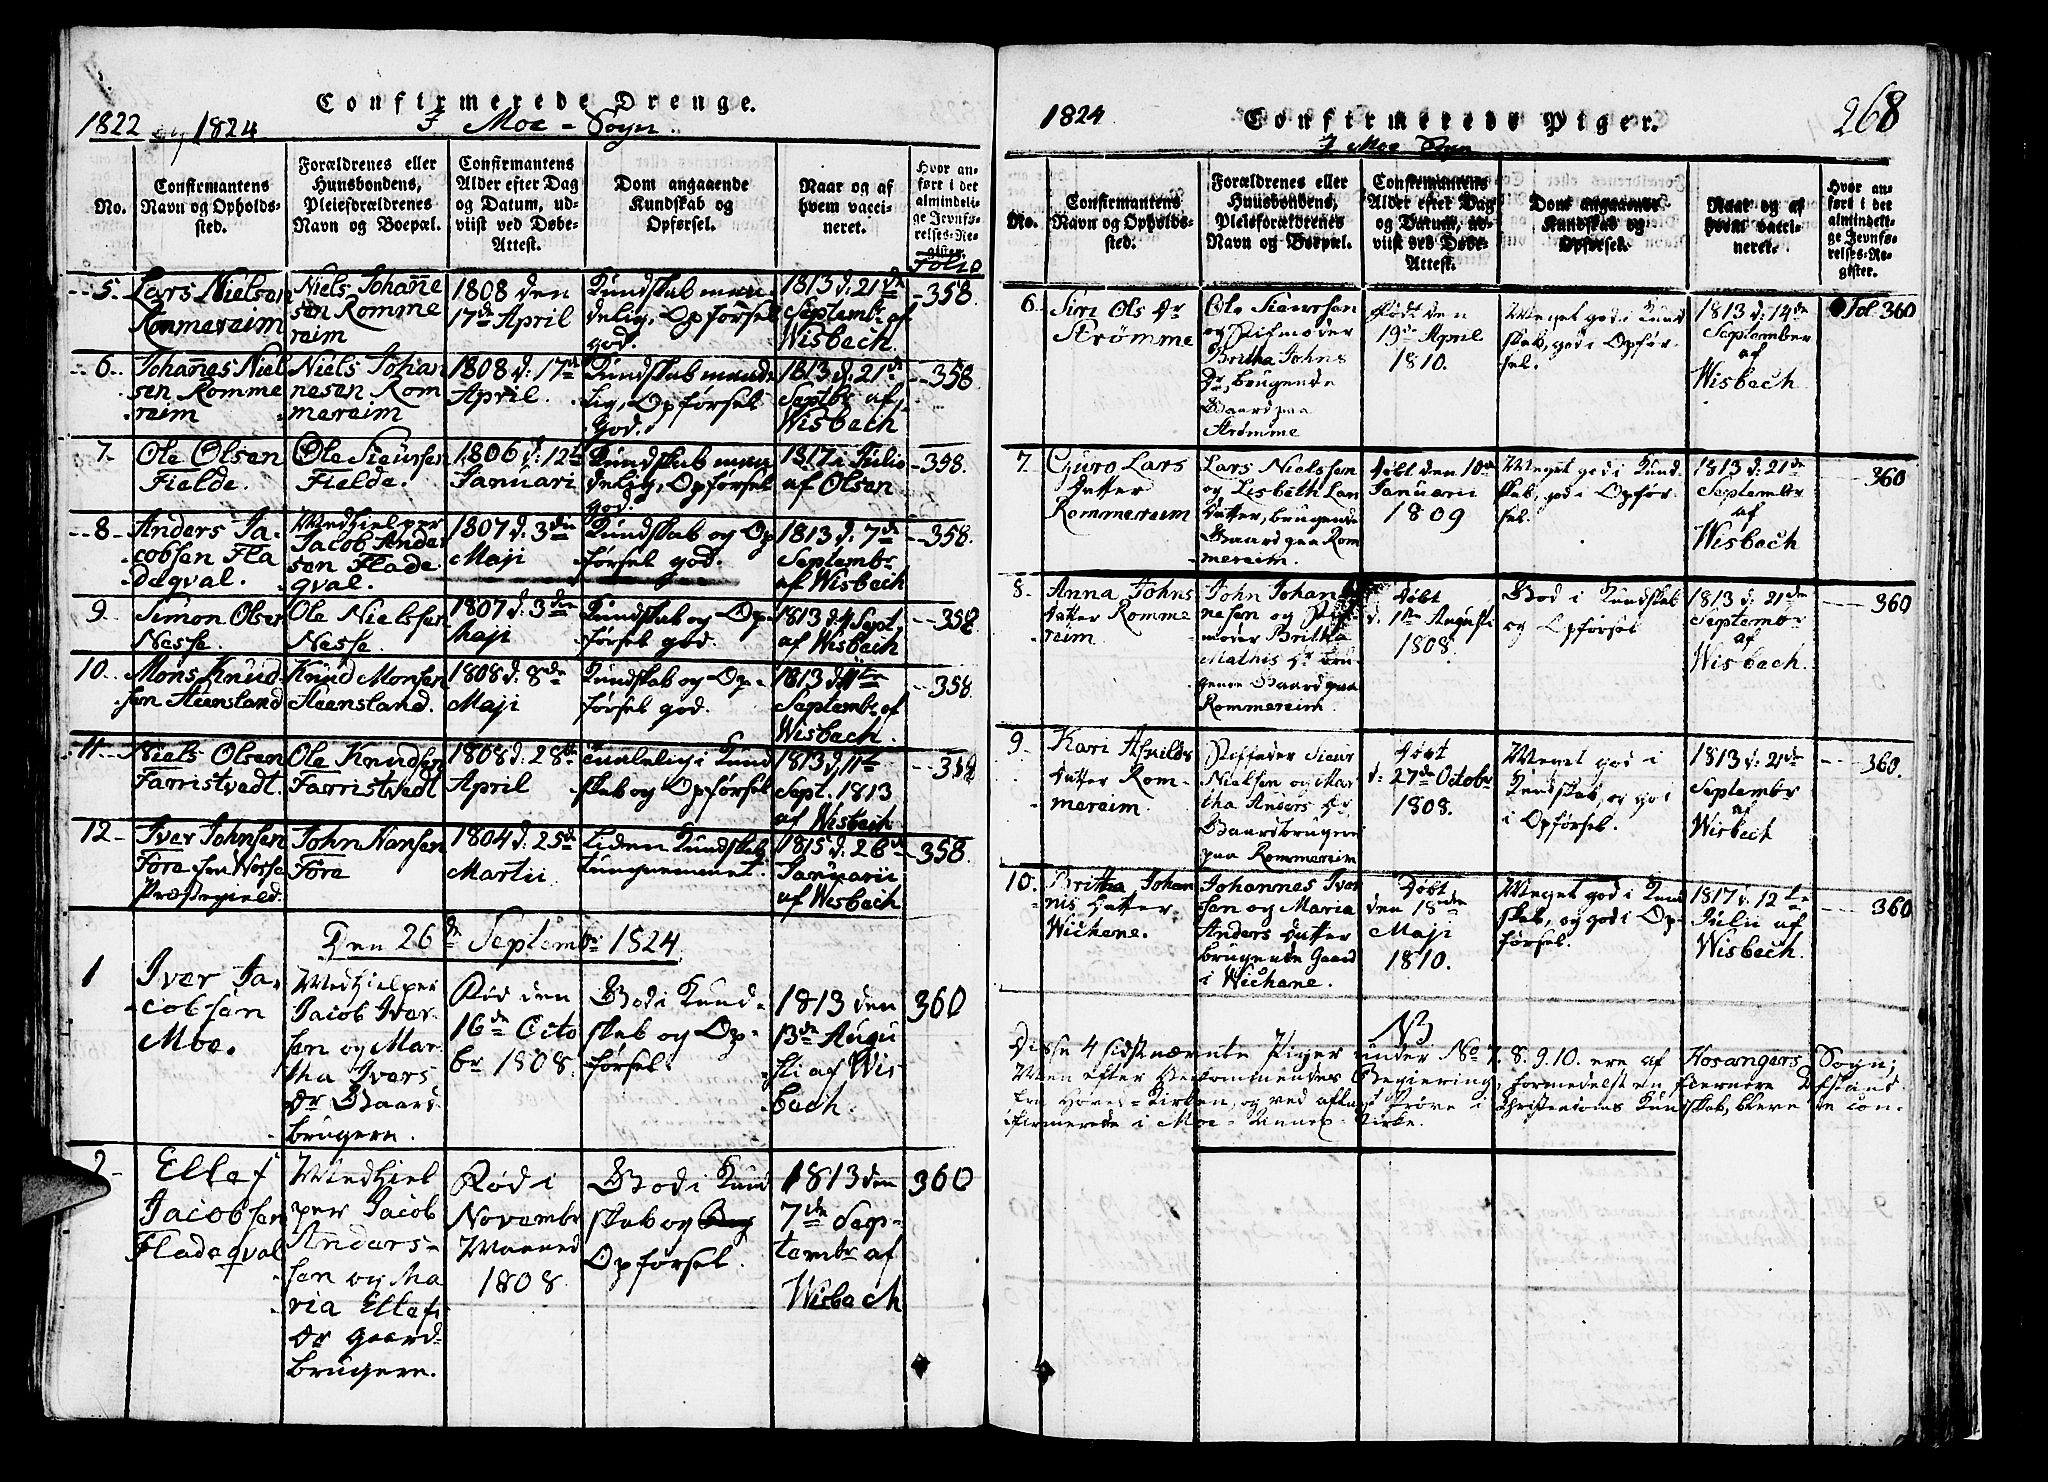 Confirmerede Drenge.
1822 og 1824 I Moe-Sogn.
No.
Confirmantens
Navn og Opholds-
sted.
Forældrenes eller
Huusbondens,
Pleieforældrenes
Navn og Boepæl.
Confirmantens
Alder efter Dag
og Datum, ud-
viist ved Døbe-
Attest.
Dom angaaende
Kundskab og
Opførsel.
Naar og af
hvem vacci-
neret.
Hvor an-
ført i det
almindeli-
ge Jevnfø-
relses-Re-
gister.
Folio
5.
Lars Nielsen
Rommereim
Niels Johanne
sen Romme
reim
1808 den
17de April
Kundskab maa-
delig, Opførsel
god.
1813 d: 21de
Septembr af
Wisbech
358.
6.
Johannes Niel
sen Romme
reim
Niels Johan
nesen Rom
mereim
1808 d: 17de
April.
Kundskab maade
lig, Opførsel
God.
1813 d: 21de
Septbr af
Wisbech
358
7.
Ole Olsen
Fielde.
Ole Siursen
Fielde.
1806 d: 12te
Januari
Kundskab maa
delig, Opførsel
god.
1817 i Julio
af Olsen
358.
8.
Anders Ja-
cobsen Fla
deqval.
Medhielper
Jacob Ander
sen Flade
qval.
1807 d: 3die
Maji
Kundskab og Op
førsel god.
1813 d. 7de
Septembr
af Wisbech
358.
9.
Simon Olsen
Nesse.
Ole Nielsen
Nesse.
1807 d: 3die
Maji
Kundskab og Op-
førsel god.
1813 d. 4 Sept.
af Wisbech
358
10.
Mons Knud-
sen Steensland
Knud Monsen
Steensland.
1808 d: 8de
Maji
Kundskab og Op-
førsel god.
1813 d. 11te
Septembr af
Wisbech.
358.
11.
Niels Olsen
Farristvedt.
Ole Knudsen
Farristvedt
1808 d: 28de
April
Taalelig i Kund
skab og Opførsel
1813 d. 11te
Sept. 1813
af Wisbech
358
12.
Iver Johnsen
Føre fra Hosse
Præstegield.
John Hansen
Føre
1804 d: 25de
Martii
Liden Kundskab
1815 d. 28de
Januarii
af Wisbech
358.
Den 26de Septembr 1824.
1
Iver Ja-
cobsen
Moe.
Medhielper
Jacob Iver-
sen og Mar-
tha Ivers
Dr Gaard-
brugere.
Fød den
16de Octo
br 1808.
God i Kund-
skab og Op-
førsel.
1813 den
13de Augu
sti af Wis
bech.
360
2
Ellef
Jacobsen
Fladeqval
Medhiel
per Jacob
Anders-
sen og Ma
ria Ellefs
Dr gaard-
brugere.
Fød i
Novembr
Maaned
1808.
God i Kund
skab og
Opførsel.
1813 den
7de Sep-
tembr af
Wisbech
360
1824.
Confirmerede Piger.
268
I Moe Sogn
No.
Confirmantens
Navn og Opholds-
sted.
Forældrenes eller
Huusbondens,
Pleieforældrenes
Navn og Boepæl.
Confirmantens
Alder efter Dag
og Datum, ud-
viist ved Døbe-
Attest.
Dom angaaende
Kundskab og
Opførsel.
Naar og af
hvem vacci-
neret.
Hvor an-
ført i det
almindeli-
ge Jevnfø-
relses-Re-
gister.
6.
Siri Ols Dr
Strømme
Ole Siursen
og Stifmoder
Britha Johns
Dr, brugende
Gaard paa
Strømme
Født den
19de April
1810.
Meget god i Kund
skab, god i Opfør-
sel.
1813 d: 14de
September
af
Wisbech.
Fol. 360
7.
Guro Lars
Datter
Rommereim
Lars Nielssen
og Lisbeth Lars
Datter, brugende
Gaard paa Rom
mereim.
Døbt den 10de
Januarii
1809
Meget god i Kund-
skab, god i Opfør-
sel.
1813 d: 21de
Septembr
af
Wisbech
360
8.
Anna Johns
Datter Romme
reim
John Johan
nesen og Stif
moder Britha
Mathis Dr bru
gende Gaard paa
Rommereim.
Døbt
d. 1ste Augusti
1808.
God i Kundskab
og Opførsel
1813 d: 21de
Septembr
af
Wisbech.
360
9.
Kari Asvilds
Datter Rom-
mereim.
Steffader Siur
Nielsen og Mar
tha Anders Dr,
Gaardbrugere
paa Rommereim
Døbt
d: 27de Octobr
1808.
Meget god i
Kundskab, og god
i Opførsel.
1813 d: 21de
Septembr
af
Wisbech
360.
10.
Britha Johan
nis Datter
Wichane.
Johannes Iver
sen og Maria
Anders Datter
brugende Gaard
i Wichane.
Døbt
den 18nde
Maji
1810.
Meget god i Kund
skab, og god i Op-
førsel.
1817 d. 12te
Julii af
Wisbech.
360
NB
Disse 4 sidstnævnte Piger under No 7. 8. 9. 10. ere af Hosangers Sogn;
Men efter Vedkommendes Begiering, formedelst en fiernere Afstand
fra Hoved-Kirken, og ved aflagt Prøve i Christendoms Kundskab, bleve de con-
firmerede i Moe-Annex-Kirke.